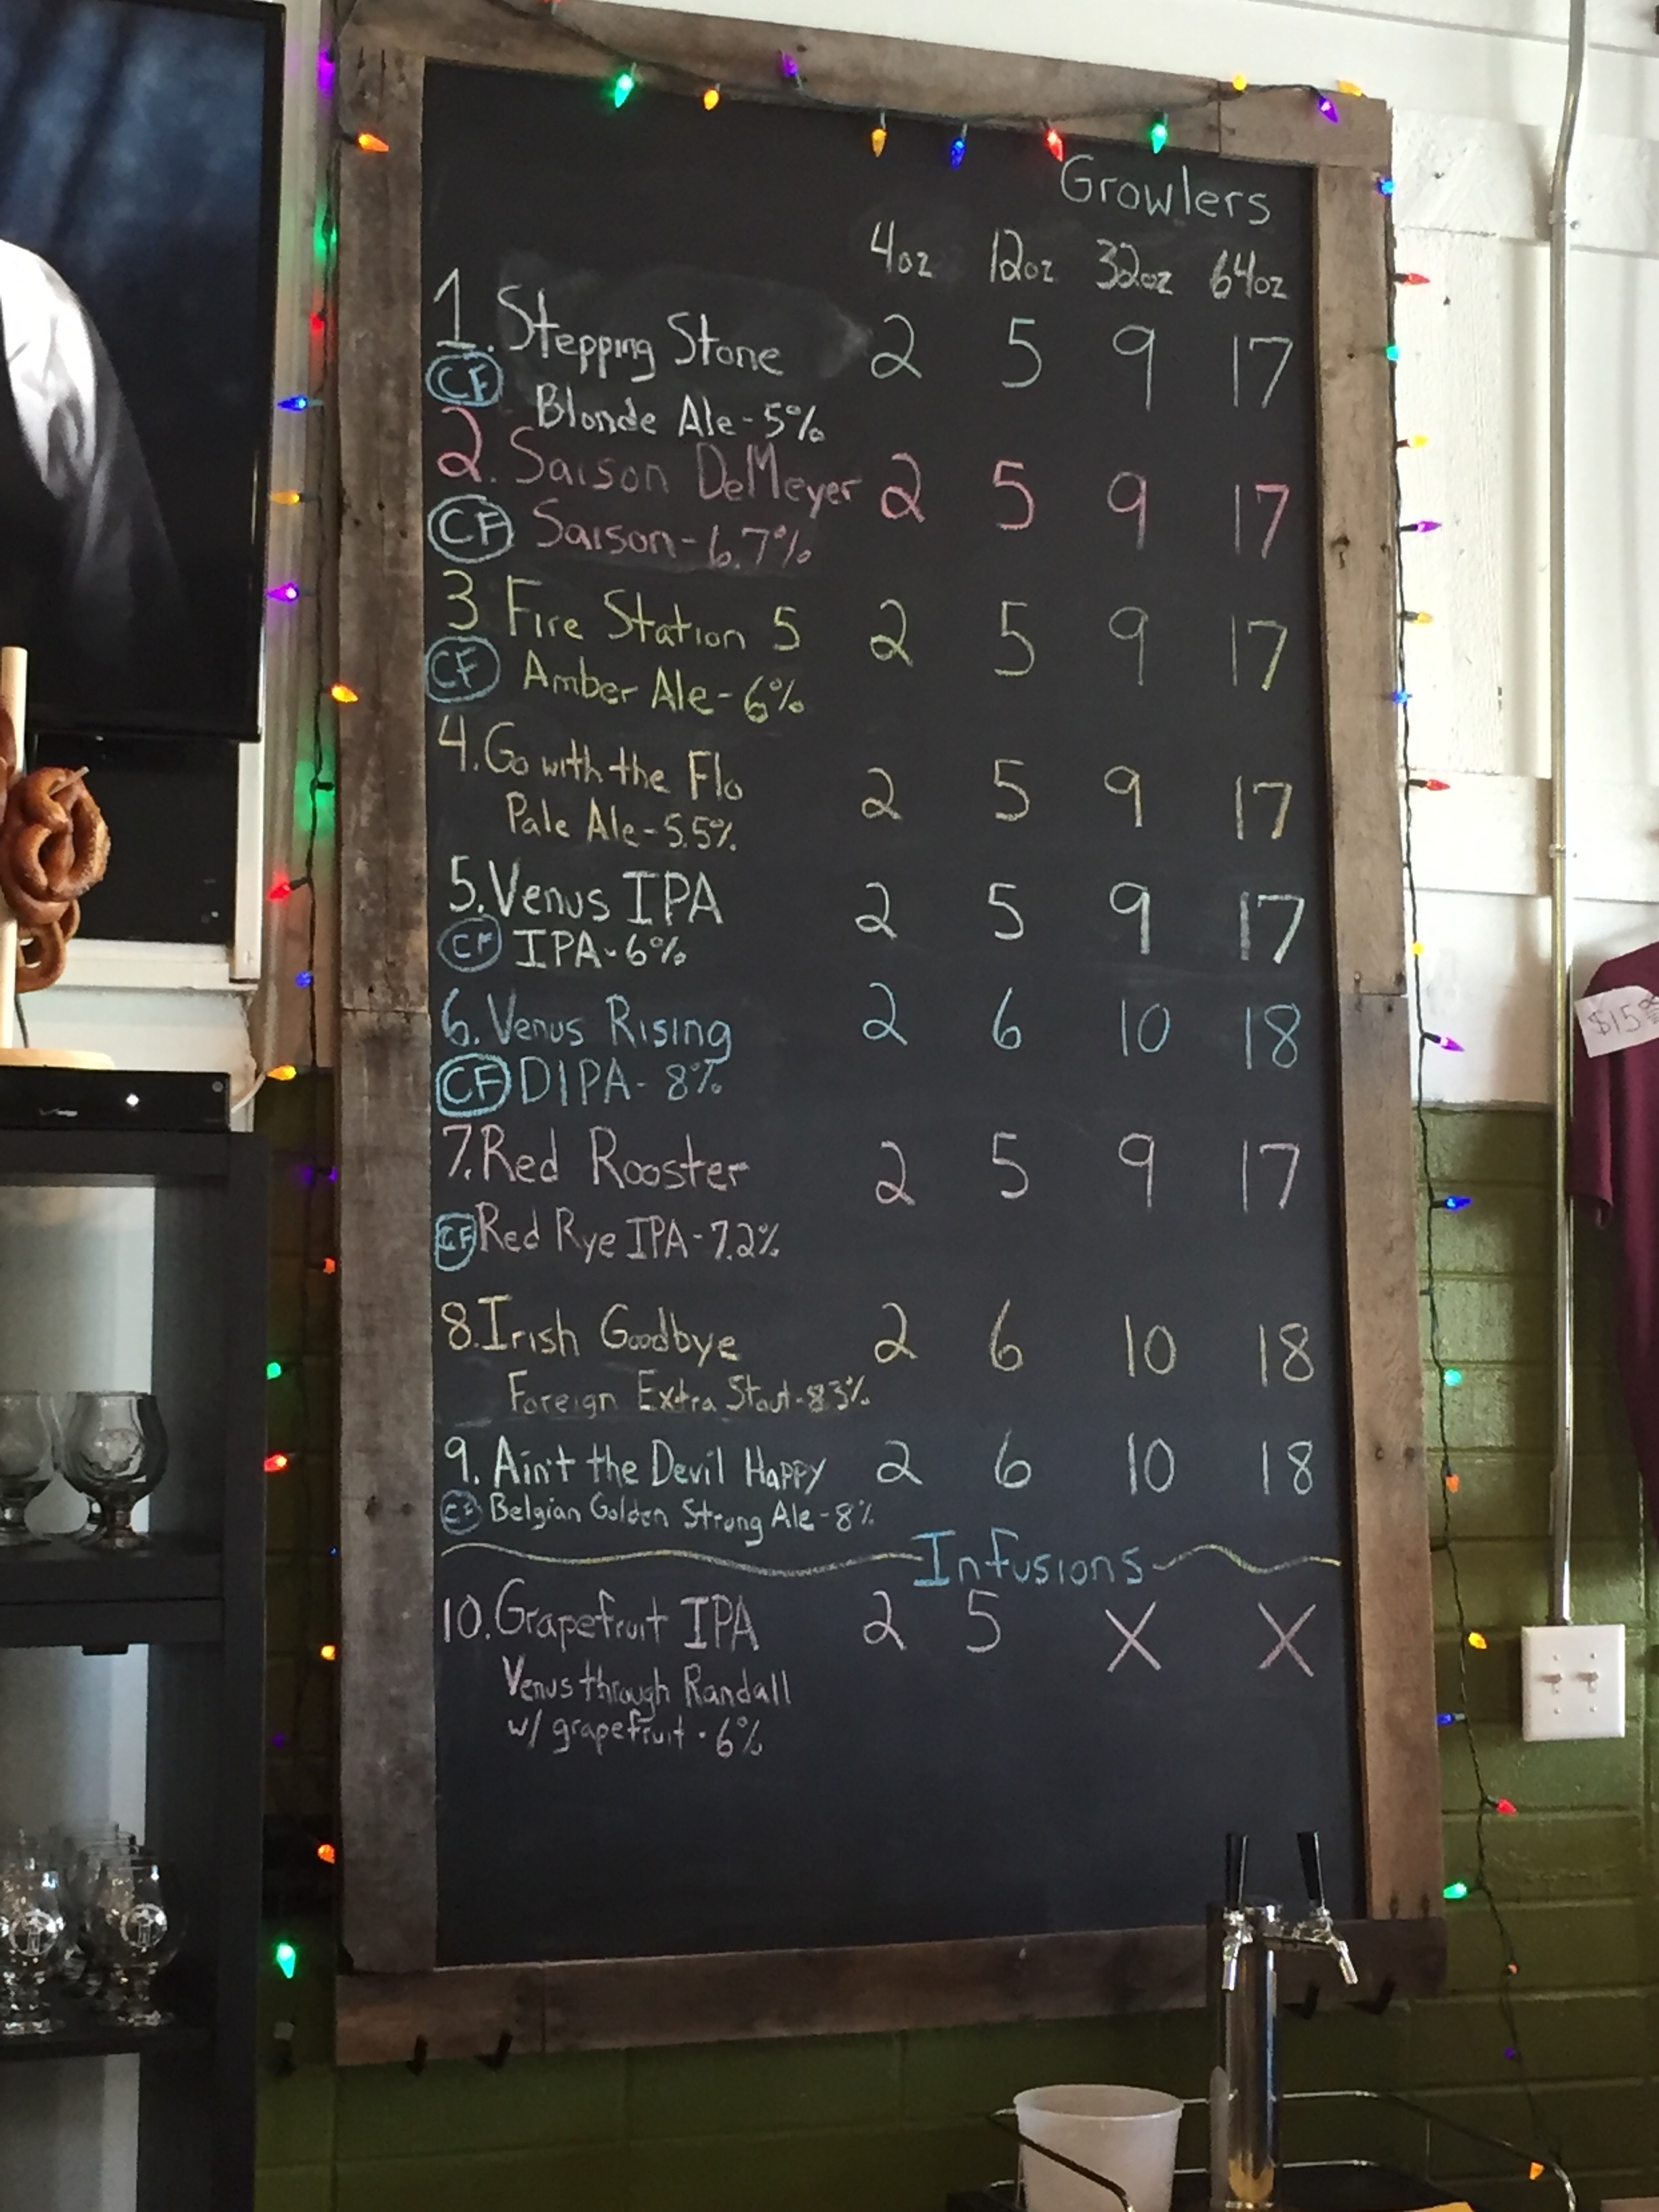 Growlers
4oz 12oz 32oz 64oz
1. Stepping Stone 2 5 9 17
CF Blonde Ale - 5%
2. Saison DeMeyer 2 5 9 17
CF Saison - 6.7%
3 Fire Station 5 2 5 9 17
CF Amber Ale - 6%
4. Go with the Flo 2 5 9 17
Pale Ale - 5.5%
5. Venus IPA 2 5 9 17
CF IPA - 6%
6. Venus Rising 2 6 10 18
CF DIPA - 8%
7. Red Rooster 2 5 9 17
CF Red Rye IPA - 7.2%
8. Irish Goodbye 2 6 10 18
Foreign Extra Stout - 8.3%
9. Ain't the Devil Happy 2 6 10 18
CF Belgian Golden Strong Ale - 8%
Infusions
10. Grapefruit IPA 2 5 X X
Venus through Randall
w/ grapefruit - 6%
$15